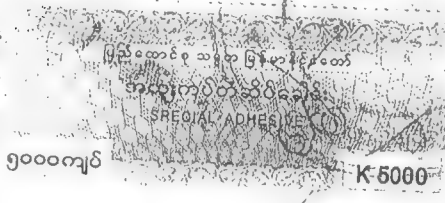 ပြည်ထောင်စု သမ္မတ မြန်မာနိုင်ငံတော်
အထူးကပ်တံဆိပ်ခေါင်း
SPECIAL ADHESIVE
၅၀၀၀ကျပ်
K 5000